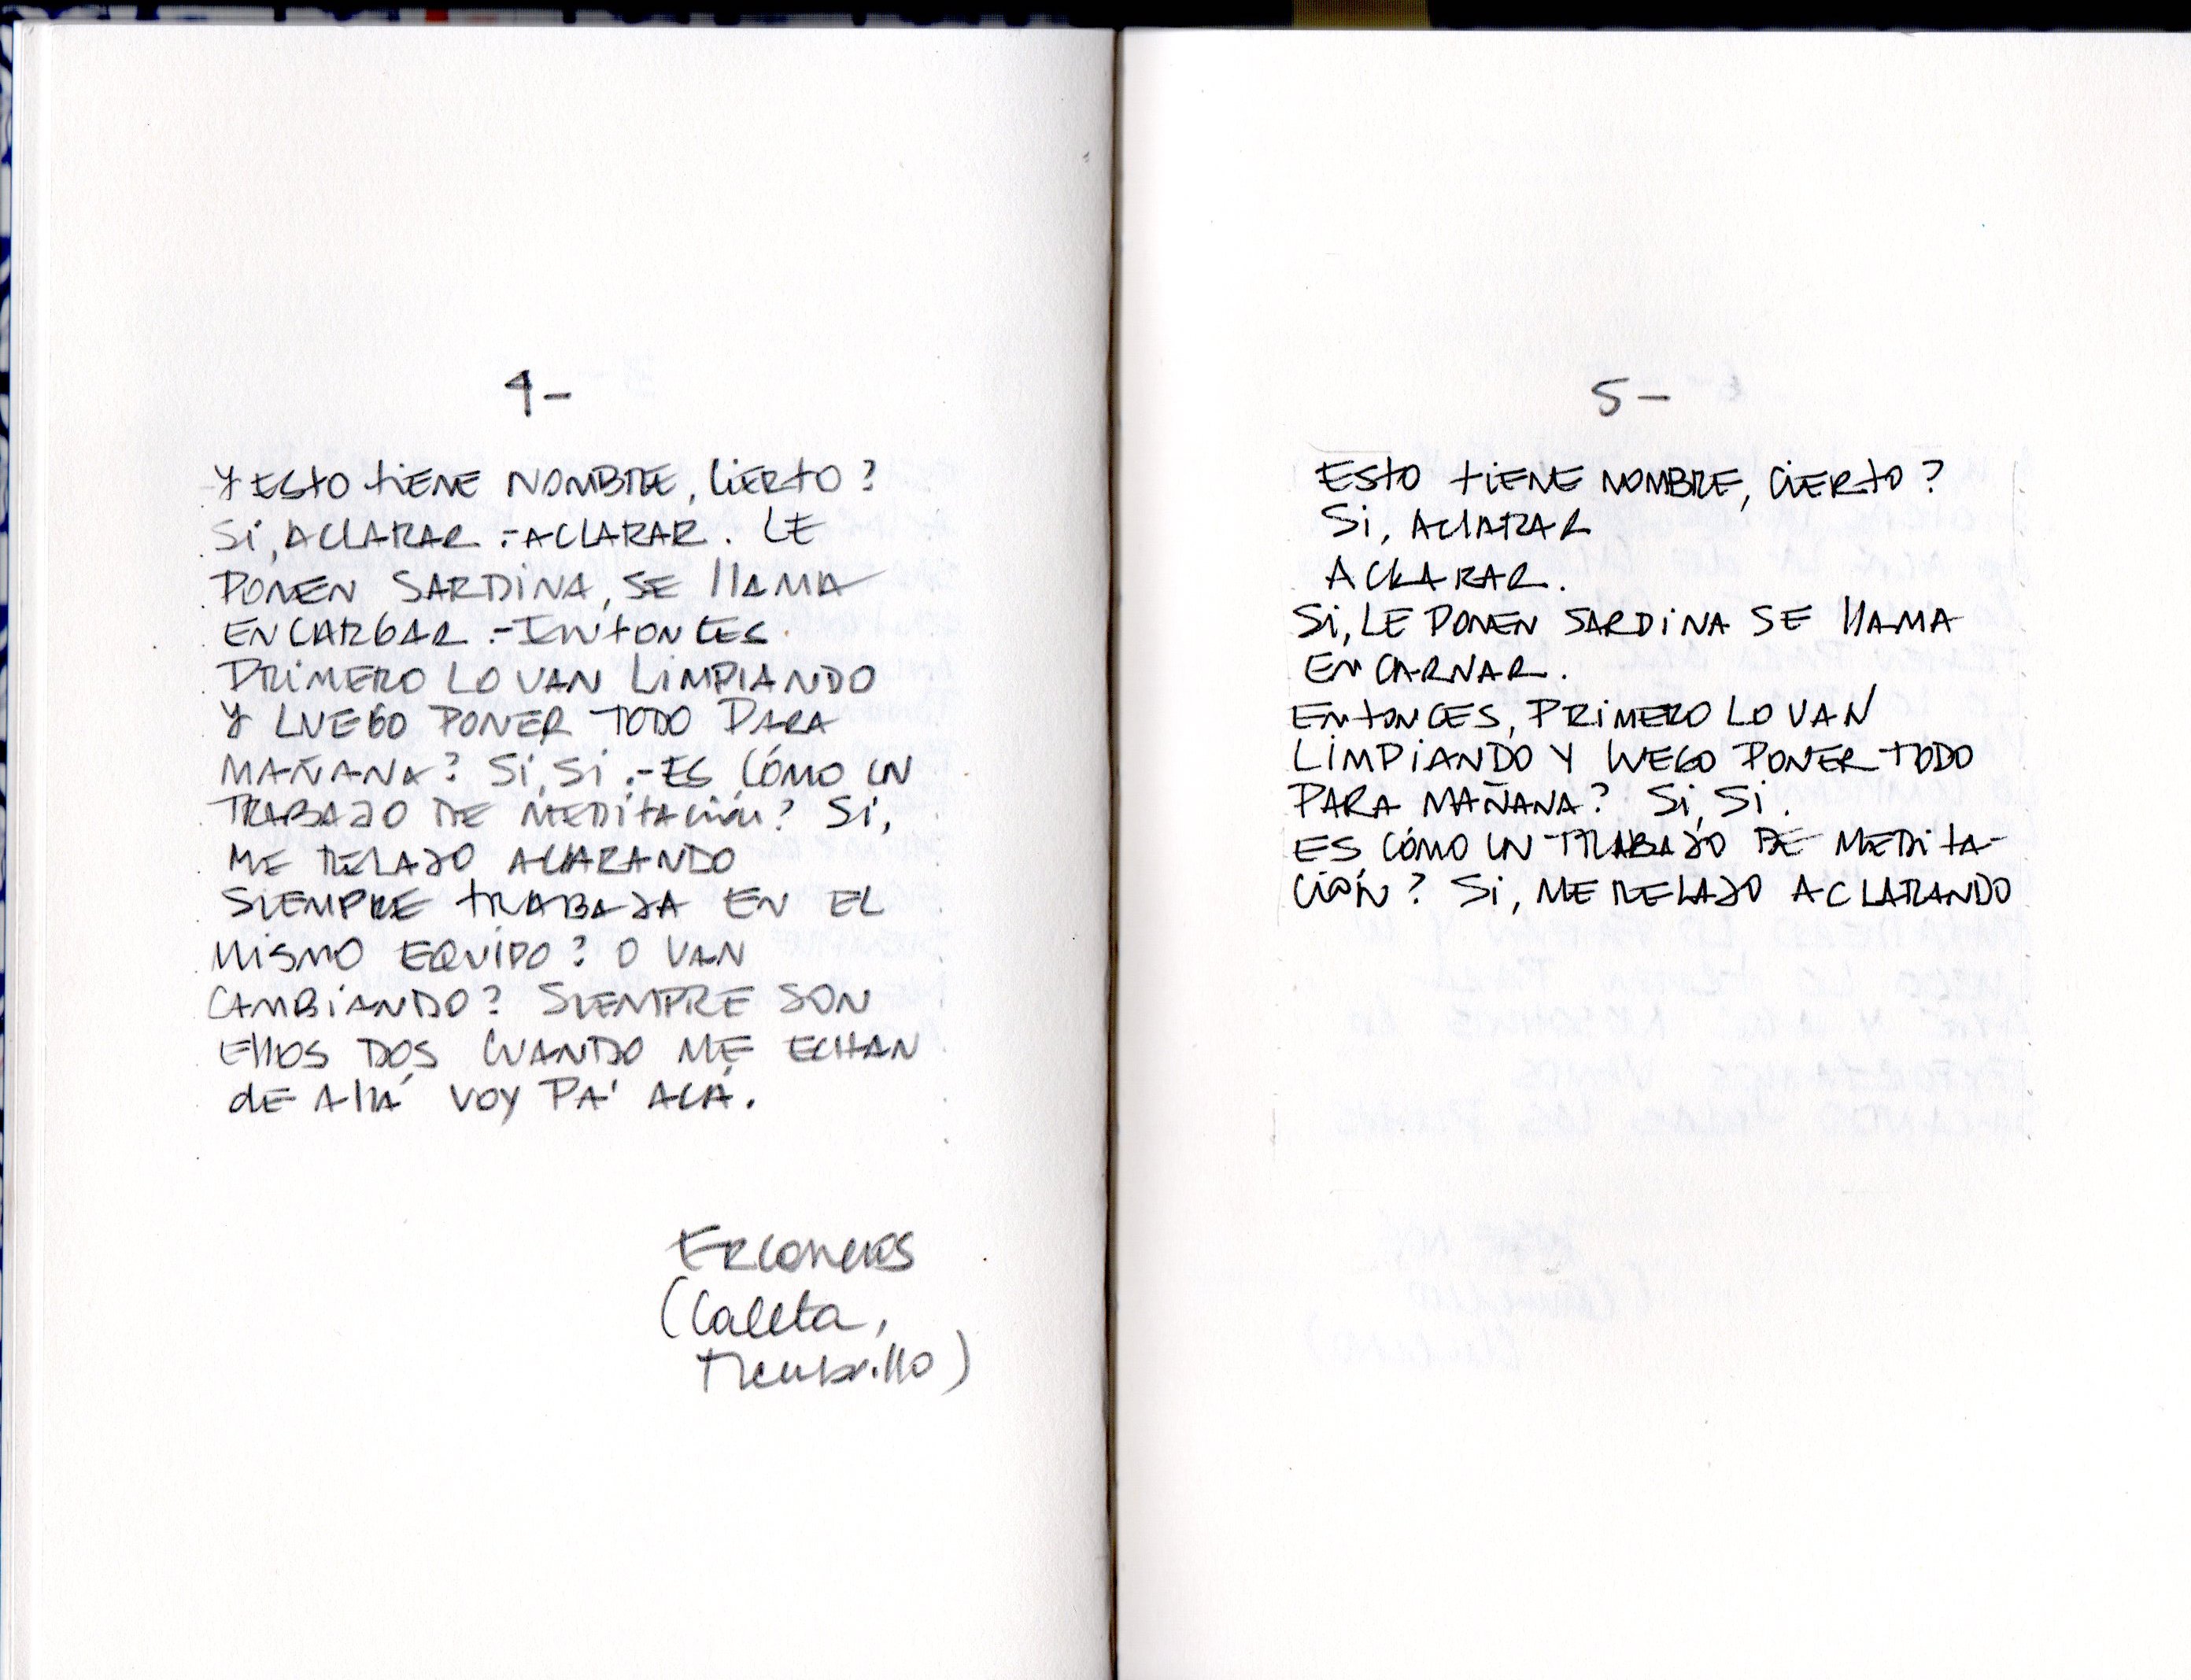 4-
Y ESTO TIENE NOMBRE, CIERTO?
SI, ACLARAR.-ACLARAR. LE
PONEN SARDINA, SE LLAMA
ENCARGAR.-ENTONCES
PRIMERO LO VAN LIMPIANDO
Y LUEGO PONER TODO PARA
MAÑANA? SI, SI.-ES CÓMO UN
TRABAJO DE MEDITACIÓN? SI,
ME RELAJO ACLARANDO
SIEMPRE TRABAJA EN EL
MISMO EQUIPO? O VAN
CAMBIANDO? SIEMPRE SON
ELLOS DOS CUANDO ME ECHAN
DE ALLÁ VOY PA' ACÁ.
(Caleta,
5-
ESTO TIENE NOMBRE, CIERTO?
SI, ACLARAR
ACLARAR.
SI, LE PONEN SARDINA SE LLAMA
ENCARNAR.
ENTONCES, PRIMERO LO VAN
LIMPIANDO Y LUEGO PONER TODO
PARA MAÑANA? SI, SI.
ES CÓMO UN TRABAJO DE MEDITA-
CIÓN? SI, ME RELAJO ACLARANDO